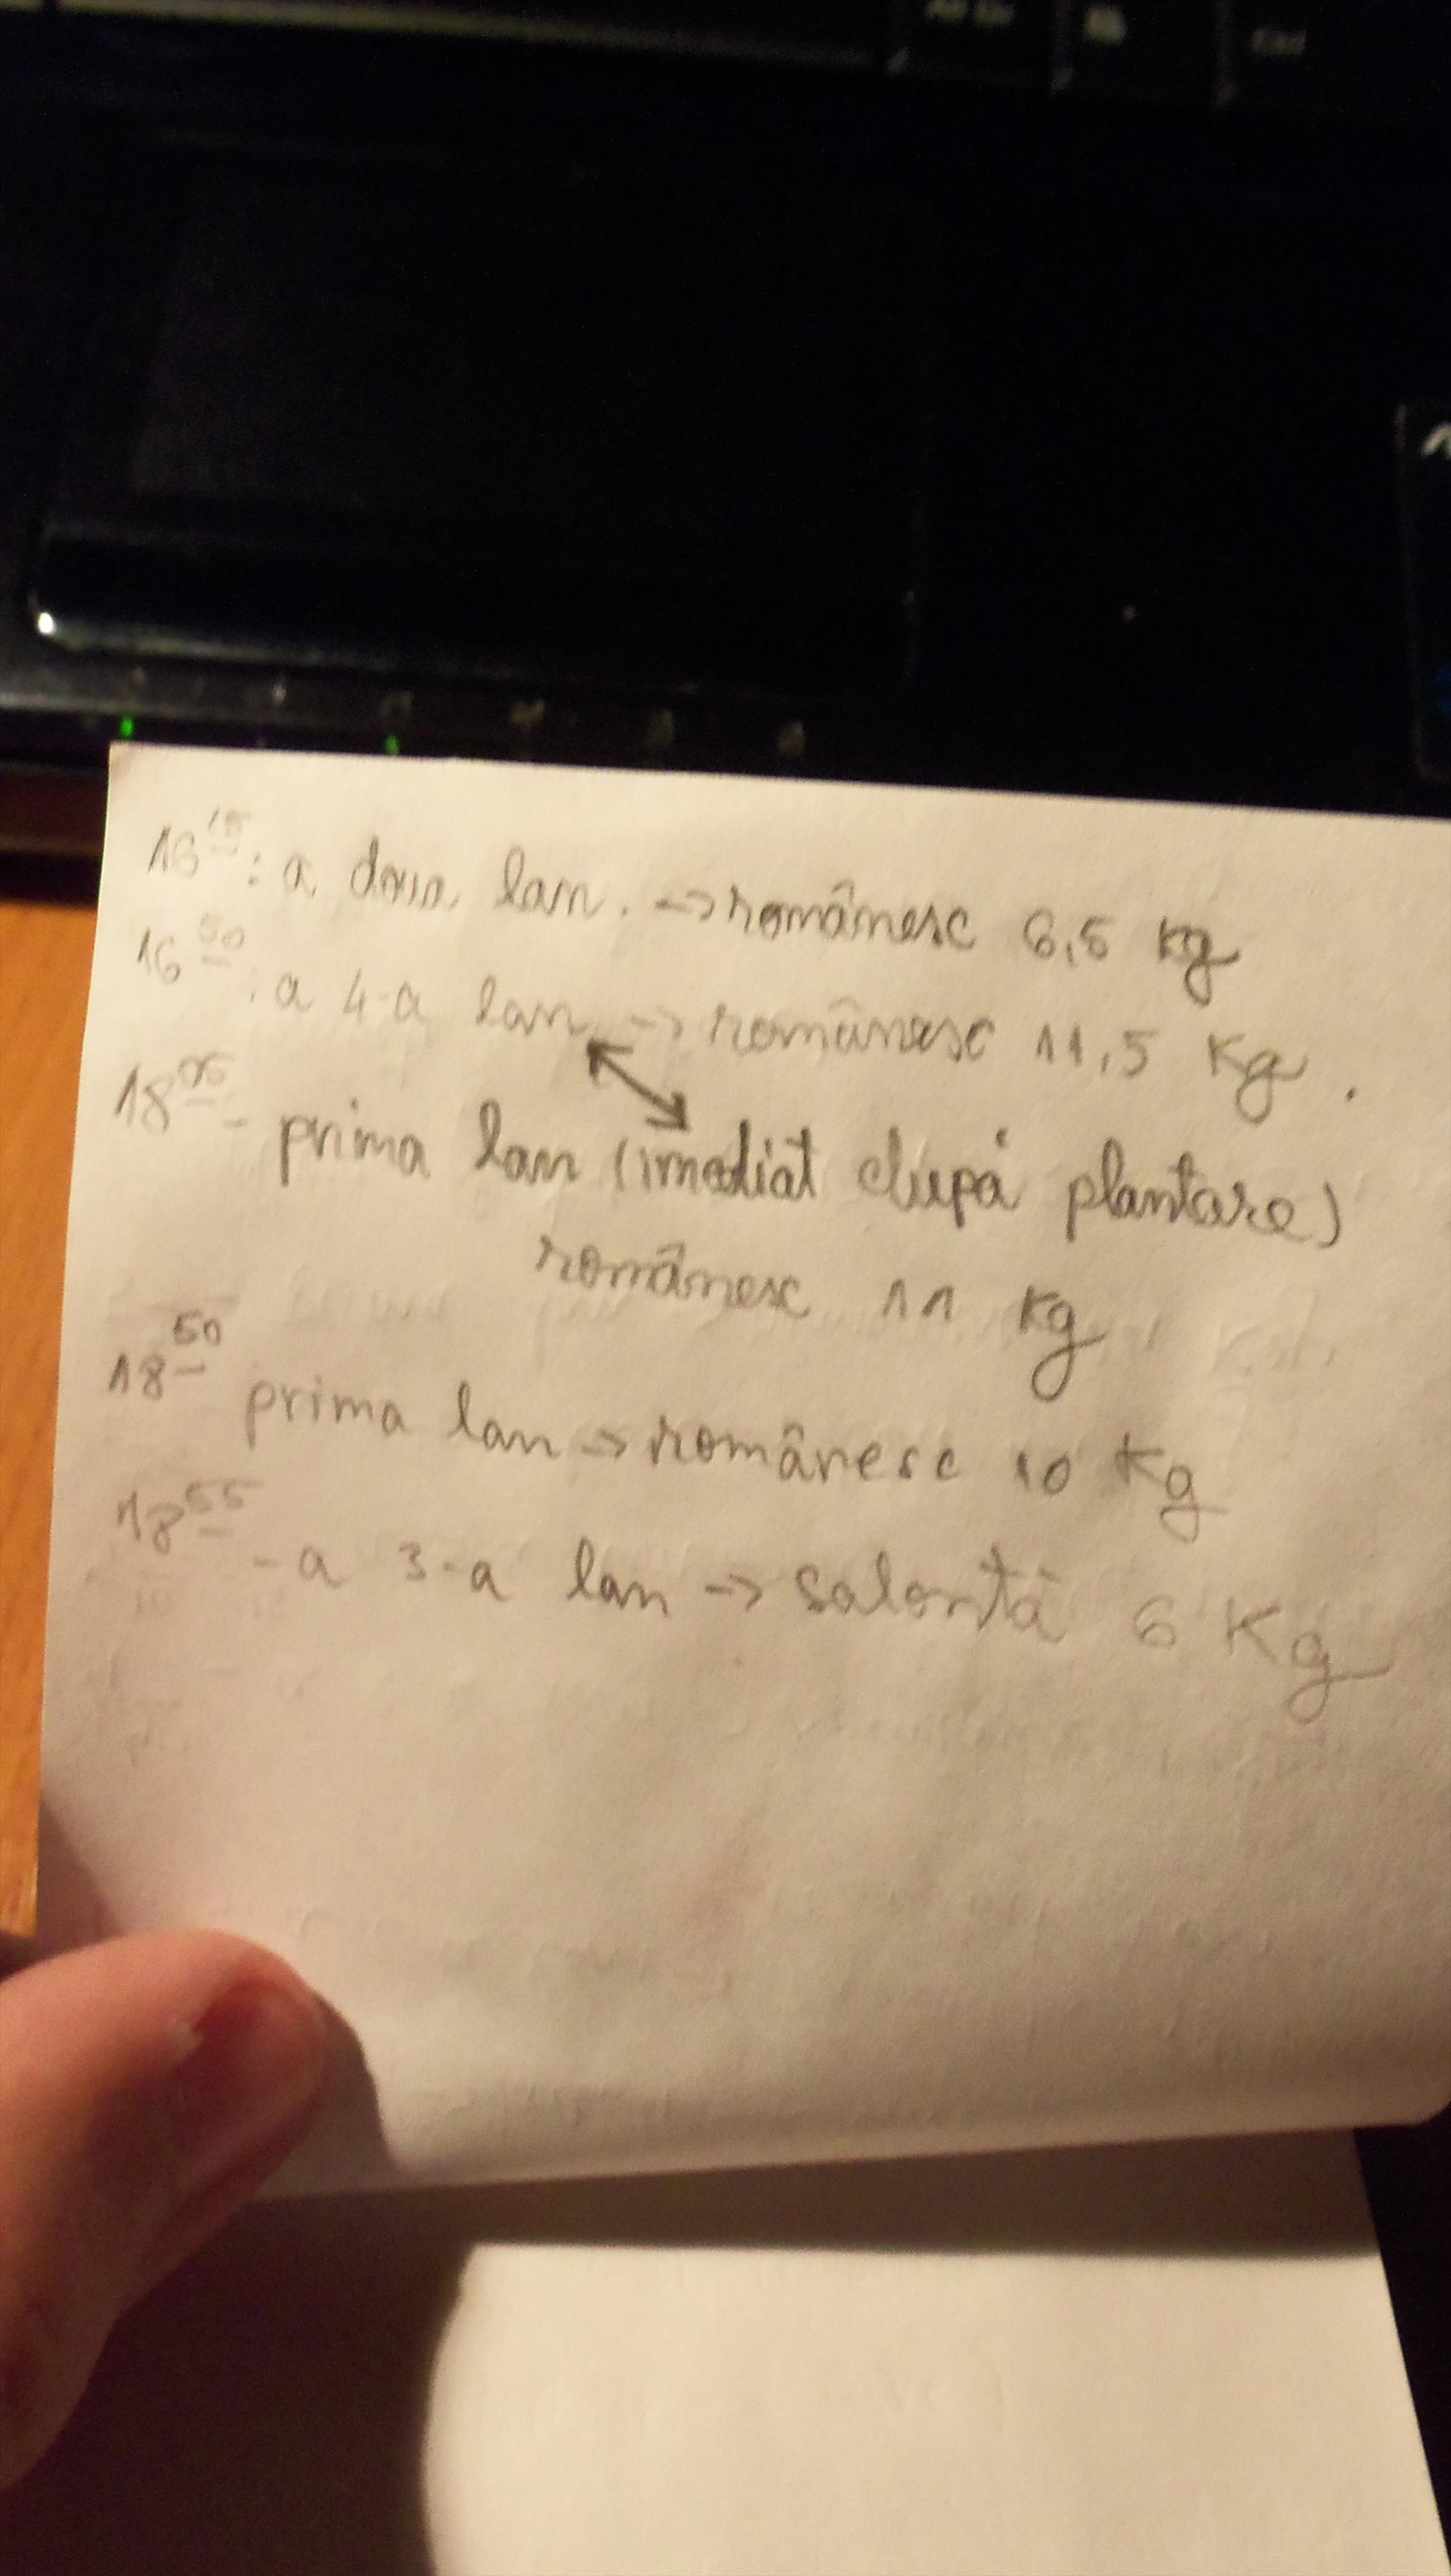 16 15 : a doua lan. → românesc 6,5 kg
16 50 : a 4-a lan → românesc 11,5 Kg.
18 05 - prima lan (imediat după plantare)
românesc 11 Kg
18 50 prima lan → românesc 10 Kg
18 55 - a 3-a lan → salontă 6 Kg